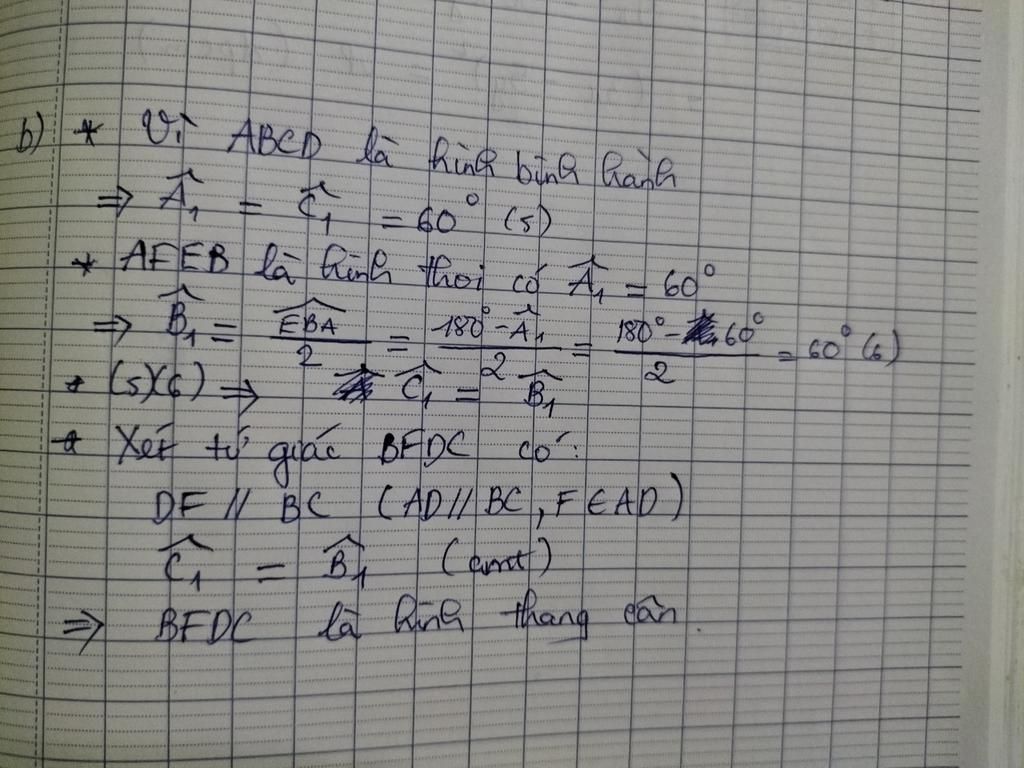 b) * Vì ABCD là hình bình hành
⇒ Â₁ = Ĉ₁ = 60° (5)
* AFEB là hình thoi có Â₁ = 60°
⇒ B̂₁ = \frac{\widehat{EBA}}{2} = \frac{180° - Â₁}{2} = \frac{180° - 60°}{2} = 60° (6)
* (5)(6) ⇒ Ĉ₁ = B̂₁
* Xét tứ giác BFDC có:
DF // BC (AD // BC, F ∈ AD)
Ĉ₁ = B̂₁ (cmt)
⇒ BFDC là hình thang cân.